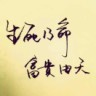 生死乃命
富贵由天